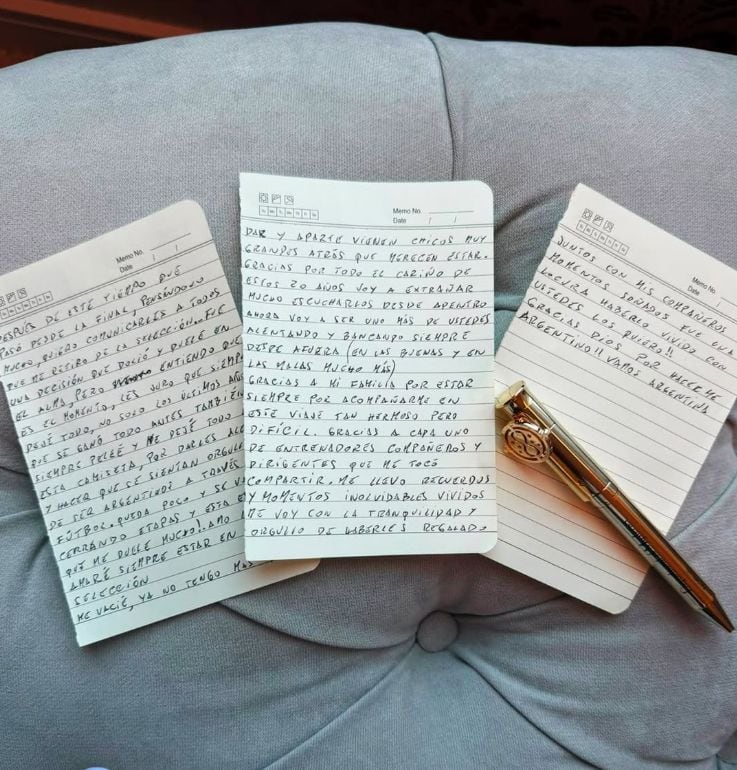 Memo No.
Date / /
DESPUES DE ESTE TIEMPO QUE
PASÓ DESDE LA FINAL, PENSÁNDOLO
MUCHO, QUIERO COMUNICARLES A TODOS
QUE ME RETIRO DE LA SELECCIÓN. FUE
UNA DECISIÓN QUE DOLIÓ Y DUELE EN
EL ALMA, PERO ENTIENDO QUE
ES EL MOMENTO, LES JURO QUE SIEMPRE
DEJÉ TODO, NO SOLO LOS ÚLTIMOS AÑOS
QUE SE GANÓ TODO ANTES TAMBIÉN
SIEMPRE PELEÉ Y ME DEJÉ TODO
ESTA CAMISETA, POR DARLES
Y HACER QUE SE SIENTAN
DE SER ARGENTINOS A TRAVÉS
FÚTBOL. QUEDA POCO Y SE
CERRANDO ETAPAS Y ESTA
QUE ME DUELE MUCHO!. AMO
AMARÉ SIEMPRE ESTAR EN
SELECCIÓN
ME VACIÉ, YA NO TENGO
Memo No.
Su Mo Tu We Th Fr Sa
Date / /
DAR Y APARTE VIENEN CHICOS MUY
GRANDES ATRÁS QUE MERECEN ESTAR.
GRACIAS POR TODO EL CARIÑO DE
ESTOS 20 AÑOS VOY A EXTRAÑAR
MUCHO ESCUCHARLOS DESDE ADENTRO
AHORA VOY A SER UNO MÁS DE USTEDES
ALENTANDO Y BANCANDO SIEMPRE
DESDE AFUERA (EN LAS BUENAS Y EN
LAS MALAS MUCHO MÁS)
GRACIAS A MI FAMILIA POR ESTAR
SIEMPRE POR ACOMPAÑARME EN
ESTE VIAJE TAN HERMOSO PERO
DIFÍCIL. GRACIAS A CADA UNO
DE ENTRENADORES COMPAÑEROS Y
DIRIGENTES QUE ME TOCÓ
COMPARTIR. ME LLEVO RECUERDOS
Y MOMENTOS INOLVIDABLES VIVIDOS
ME VOY CON LA TRANQUILIDAD Y
ORGULLO DE HABERLES REGALADO
Memo No.
Date
JUNTOS CON MIS COMPAÑEROS
MOMENTOS SOÑADOS FUE UNA
LOCURA HABERLO VIVIDO CON
USTEDES LOS QUIERO!!
GRACIAS DIOS POR HACERME
ARGENTINO!! VAMOS ARGENTINA